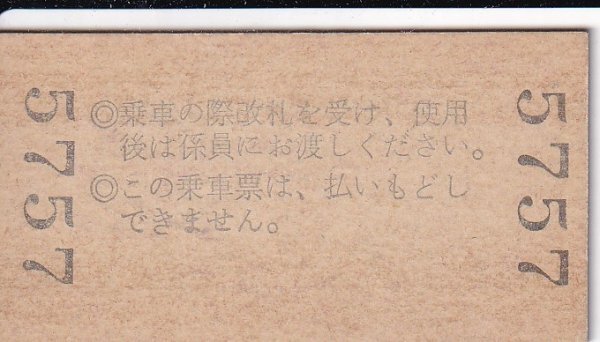 5757
◎乗車の際改札を受け、使用
後は係員にお渡しください。
◎この乗車票は、払いもどし
できません。
5757